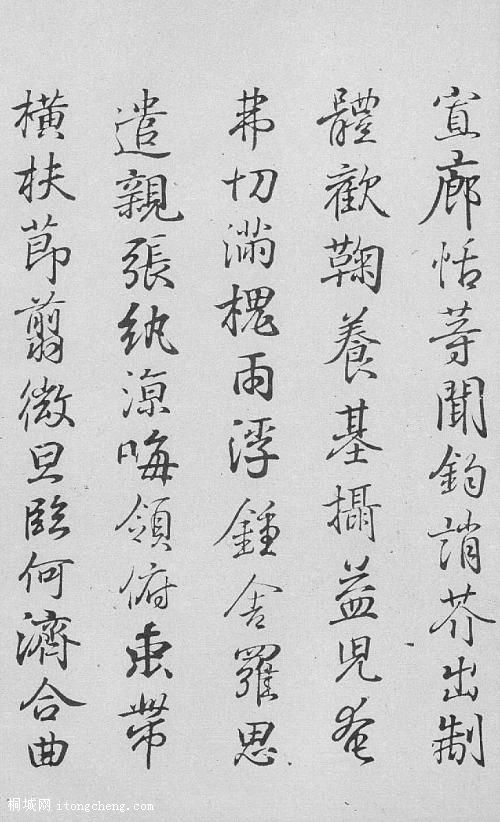 廊恬等聞鈞誚芥出制
體歡鞠養基攝益兒奄
弗切滿槐雨浮鍾舍羅思
遣親張紈涼晦領俯束帶
橫扶節翦微旦臨何濟合曲
桐城网 itongcheng.com